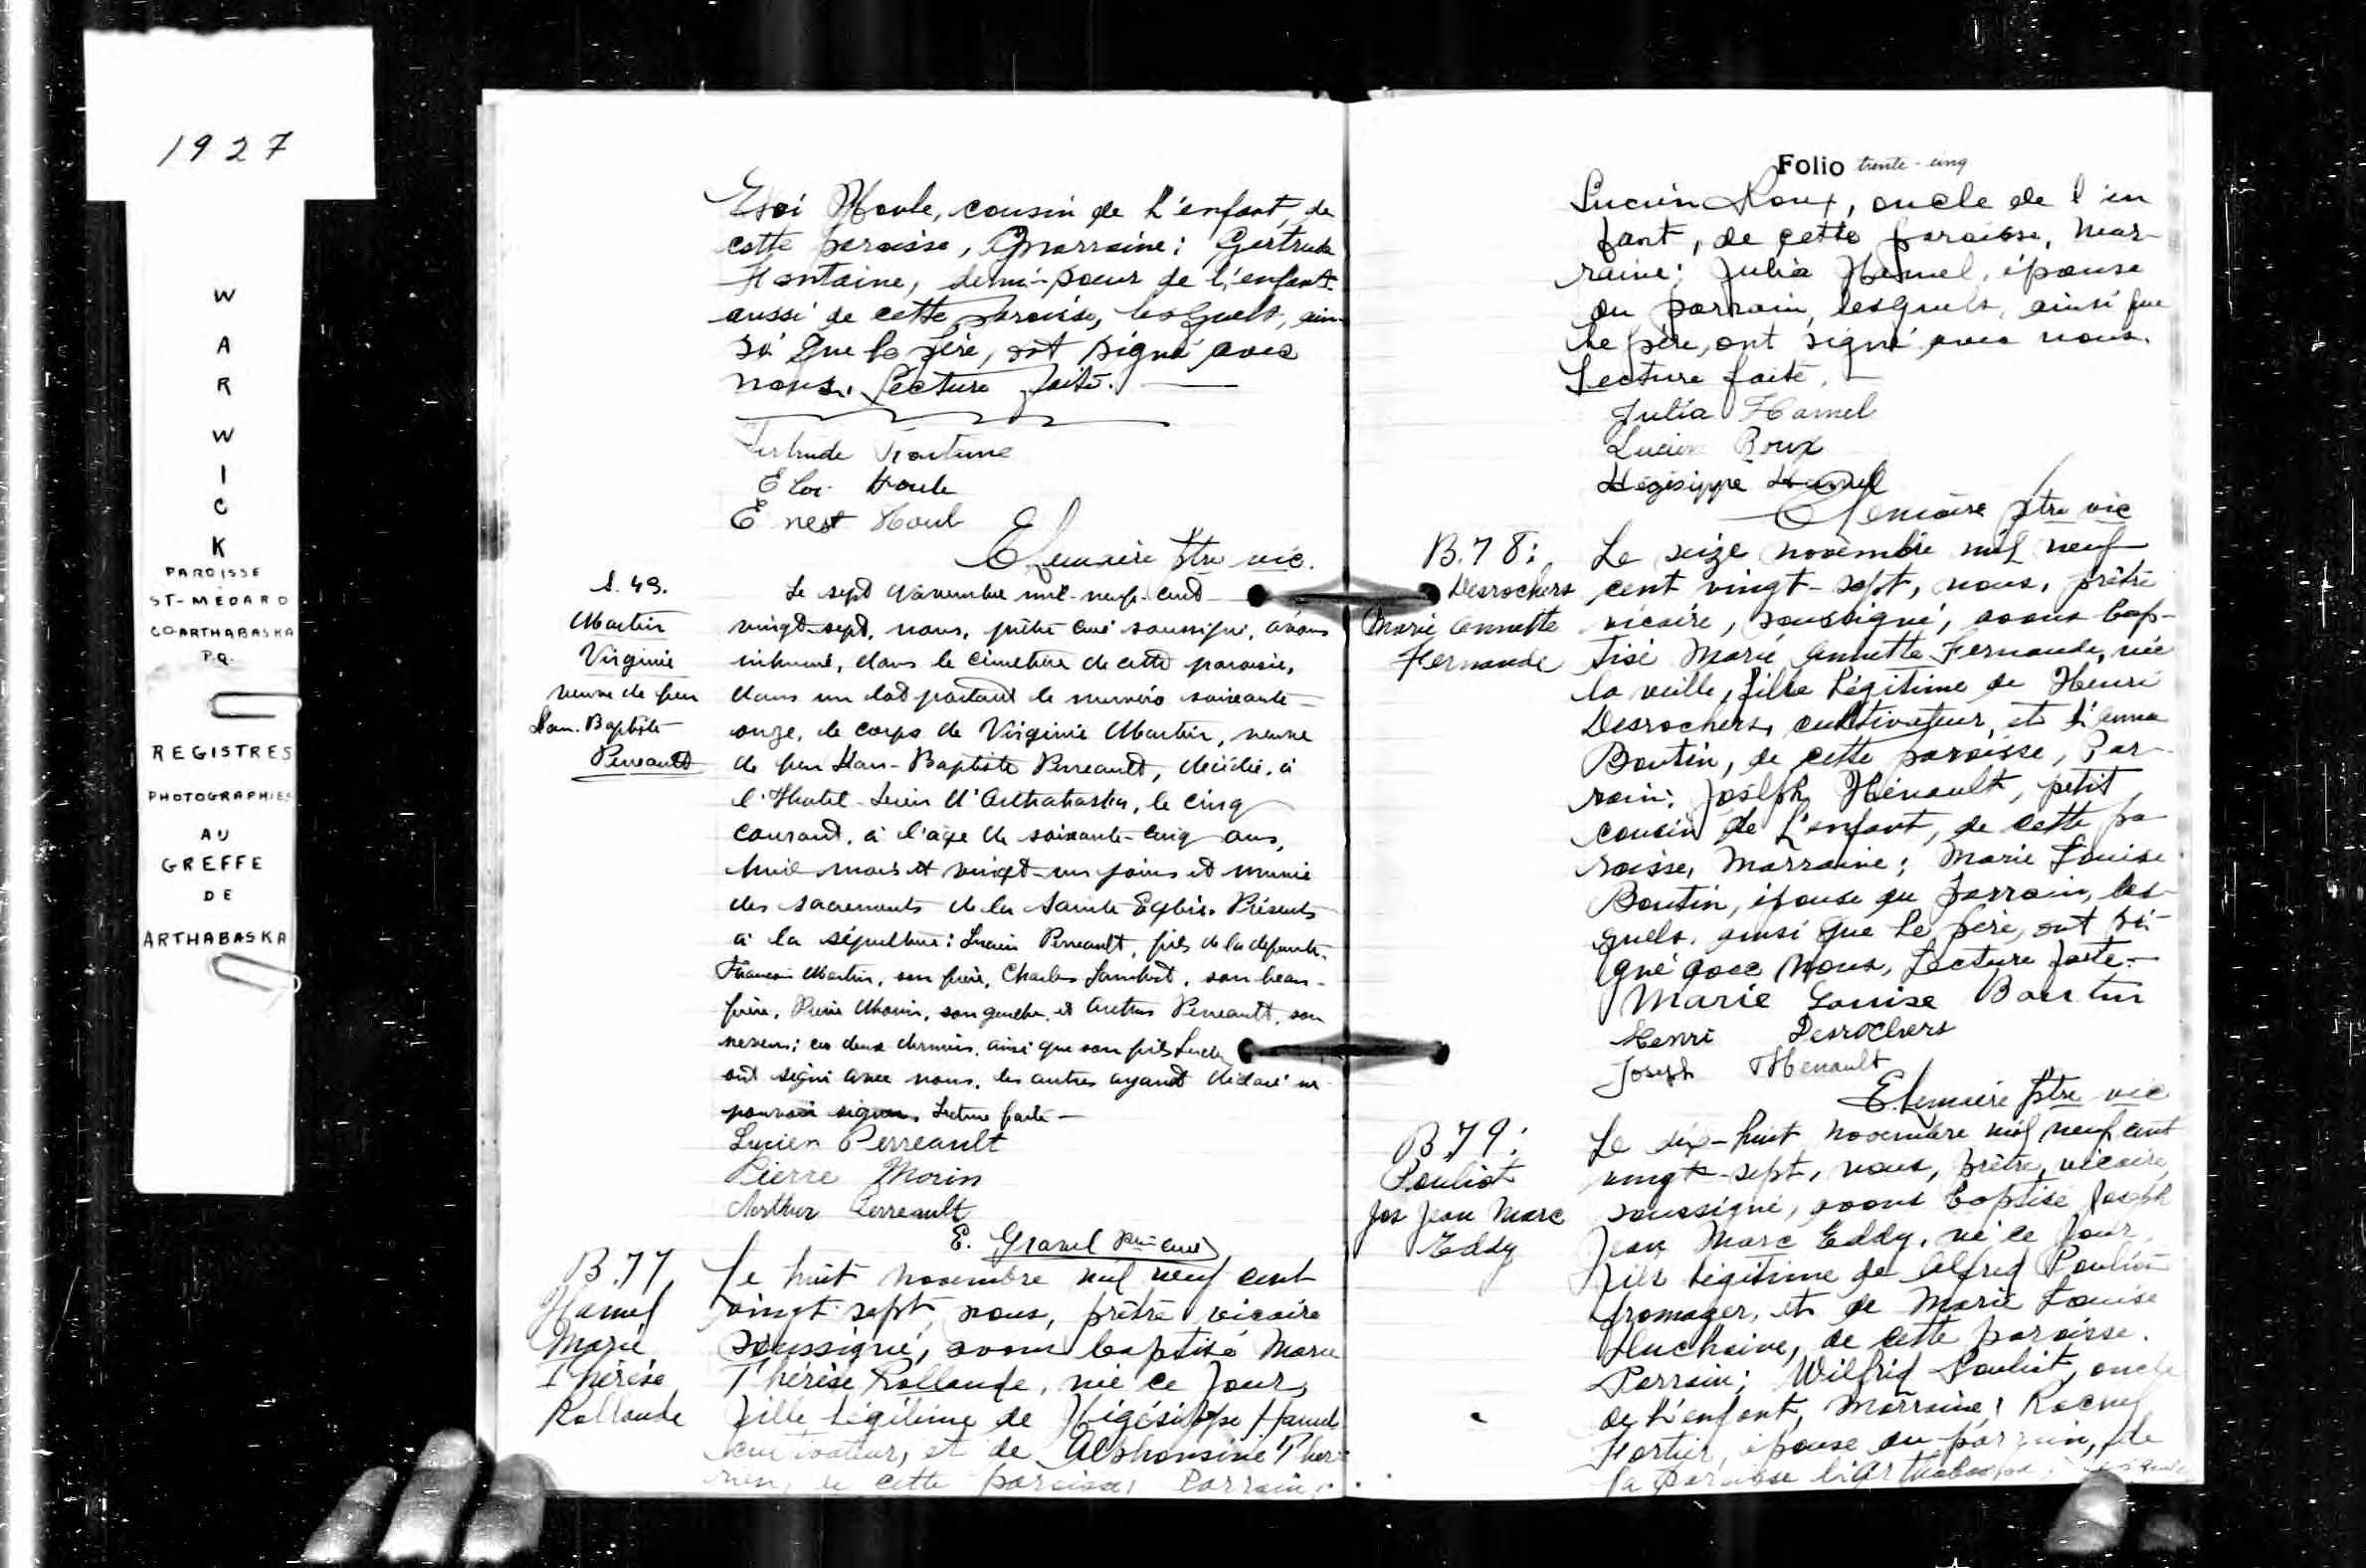 1927
WARWICK
PAROISSE
ST-MEDARD
CO ARTHABASKA
P.Q.
REGISTRES
PHOTOGRAPHIES
AU
GREFFE
DE
ARTHABASKA
Eloi Houle, cousin de l'enfant, de
cette paroisse, Marraine: Gertrude
Fontaine, demi-soeur de l'enfant
aussi de cette paroisse, lesquels, ain-
si que le père, ont signé avec
nous. Lecture faite.
Gertrude Fontaine
Eloi Houle
Ernest Houle
E Lemaire ptre vic.
S. 43.
Martin
Virginie
veuve de feu
Jean-Baptiste
Perreault
Le sept Novembre mil-neuf-cent-
vingt-sept, nous, prêtre curé soussigné, avons
inhumé, dans le cimetière de cette paroisse,
dans un lot portant le numéro soixante-
onze, le corps de Virginie Martin, veuve
de feu Jean-Baptiste Perreault, décédée, à
l'Hotel-Dieu d'Arthabaska, le cinq
courant, à l'âge de soixante-cinq ans,
huit mois et vingt-un jours et munie
des sacrements de la Sainte Eglise. Présents
à la sépulture: Lucien Perreault, fils de la défunte,
François Martin, son frère, Charles Lambert, son beau-
frère, Pierre Morin, son gendre, et Arthur Perreault, son
neveu; ces deux derniers, ainsi que son fils Lucien
ont signé avec nous, les autres ayant déclaré ne
pouvoir signer. Lecture faite —
Lucien Perreault
Pierre Morin
Arthur Perreault
E. Gravel ptre curé
B.77
Hamel
Marie
Thérèse
Rollande
Le huit novembre mil neuf cent
vingt-sept, nous, prêtre vicaire
soussigné, avons baptisé Marie
Thérèse Rollande, née ce jour,
fille légitime de Hégésippe Hamel
cultivateur, et de Alphonsine Ther-
rien, de cette paroisse, Parrain:
Folio trente-cinq
Lucien Roux, oncle de l'en
fant, de cette paroisse, Mar-
raine: Julia Hamel, épouse
du parrain, lesquels, ainsi que
le père, ont signé avec nous.
Lecture faite.
Julia Hamel
Lucien Roux
Hégésippe Hamel
E Lemaire ptre vic
B.78:
Desrochers
Marie Annette
Fernande
Le seize novembre mil neuf
cent vingt-sept, nous, prêtre
vicaire, soussigné, avons bap-
tisé Marie Annette Fernande, née
la veille, fille légitime de Henri
Desrochers, cultivateur, et d'Anna
Boutin, de cette paroisse, Par-
rain: Joseph Hénault, petit
cousin de l'enfant, de cette pa
roisse, Marraine; Marie Louise
Boutin, épouse du parrain, les-
quels, ainsi que le père, ont si-
gné avec nous, Lecture faite.-
Marie Louise Boutin
Henri Desrochers
Joseph Henault
E. Lemaire Ptre vic
B.79:
Pouliot
Jos Jean Marc
Eddy
Le dix-huit novembre mil neuf cent
vingt-sept, nous, prêtre, vicaire,
soussigné, avons baptisé Joseph
Jean Marc Eddy, né ce jour,
fils légitime de Alfred Pouliot
fromager, et de Marie Louise
Duchaine, de cette paroisse.
Parrain; Wilfrid Pouliot, oncle
de l'enfant, Marraine; Rachel
Fortier, épouse du parrain, de
la paroisse d'Arthabaska, lesquels